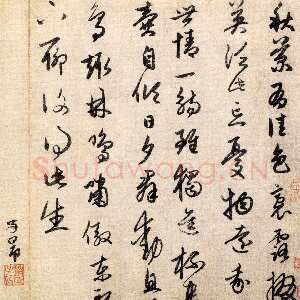 秋菊有佳色裛露掇
英汎此忘憂物遠我
世情一觴雖獨進杯
壺自傾日夕群動息
鳥趨林鳴嘯傲東軒
下聊復得此生
子昂
Shufawang.CN